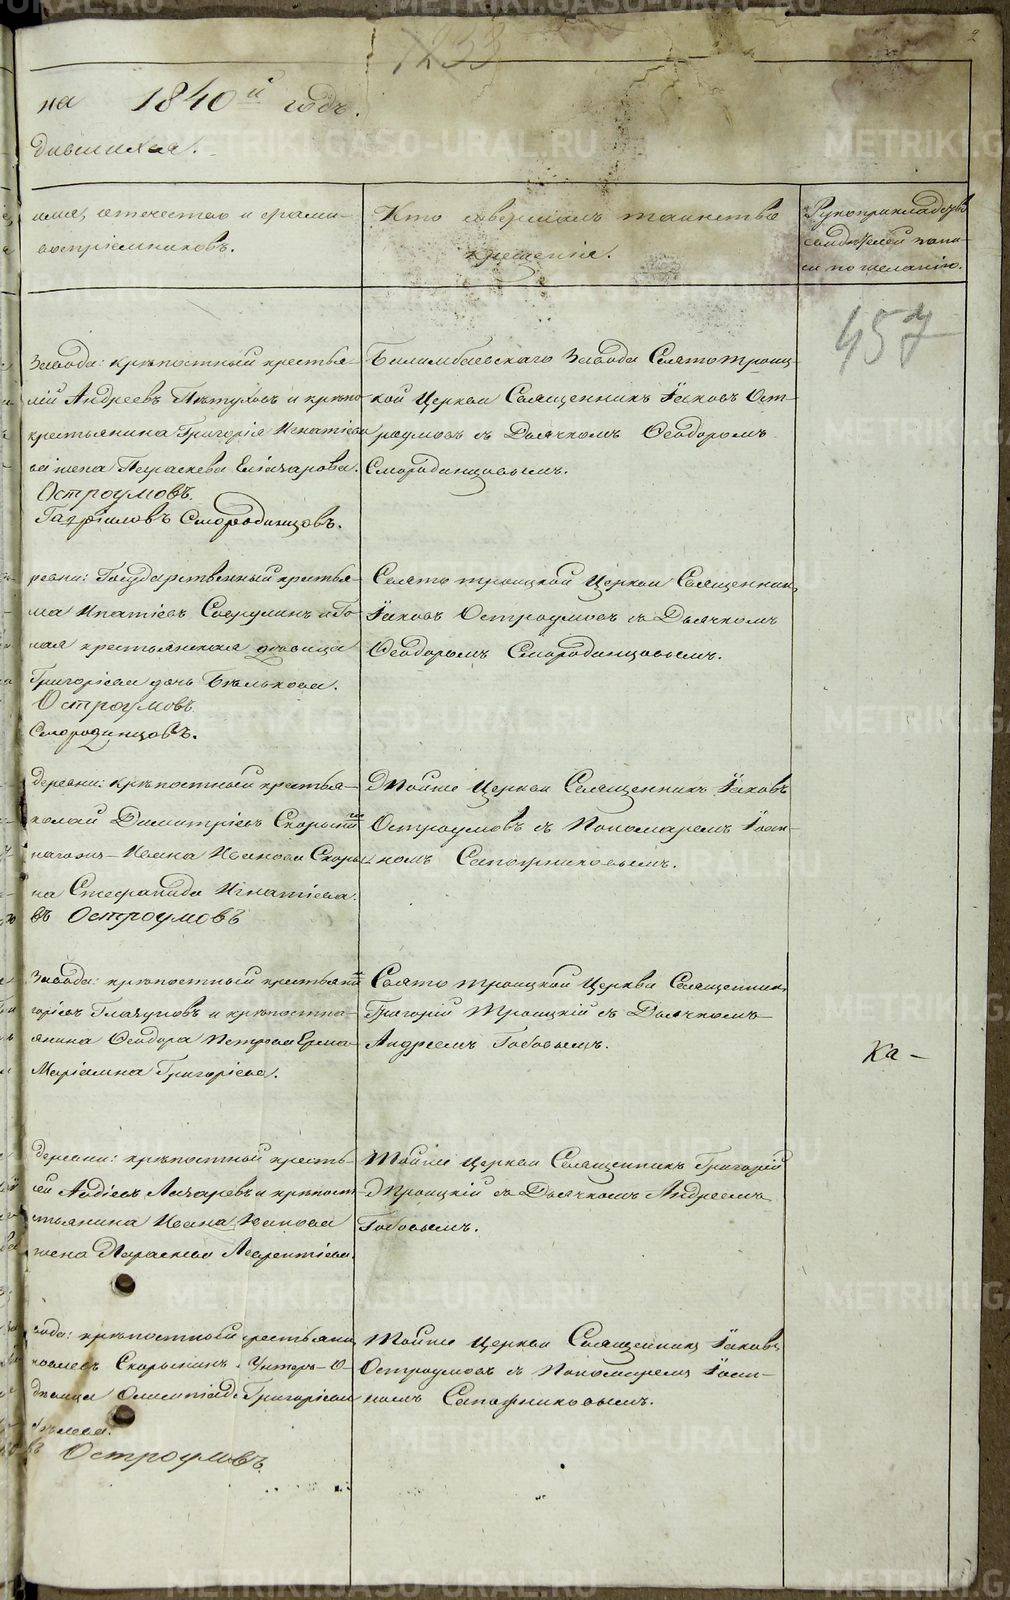 1233
2
на 1840й годъ.
дившихся.
имя, отечество и фами-
воспріемниковъ.
Кто совершалъ таинство
крещенія.
Рукоприкладство
свидѣтелей запи-
си по желанію.
457
Завода: крѣпостный крестья-
лій Андреевъ Пѣтуховъ и крѣпо
крестьянина Григорія Игнатіева
жена Параскева Елизарова.
Остроумовъ.
Гавріиловъ Смородинцовъ.
Билимбаевскаго Завода Святотроиц-
кой Церкви Священникъ Іаковъ Ост-
роумовъ съ Дьячкомъ Ѳеодоромъ
Смородинцовымъ.
ревни: Государственный крестья-
ма Ипатіевъ
ная крестьянская дѣвица
Григоріева дочь Бѣлькова.
Остроумовъ.
Смородинцовъ.
Свято троицкой Церкви Священник
Іаковъ Остроумовъ съ Дьячкомъ
Ѳеодоромъ Смородинцовымъ.
деревни: крѣпостный крестья-
колай Димитріевъ
Ивана Иванова
на Стефанида Игнатіева.
въ Остроумовъ
Тойже Церкви Священникъ Іаковъ
Остроумовъ съ Пономаремъ Іоан-
номъ Сапожниковымъ.
Завода: крѣпостный крестьяни
горіевъ Глазуновъ и крѣпостна-
янина Ѳеодора Петрова Ерма-
Маріамна Григоріева.
Свято троицкой Церкви Священник
Григорій Троицкій съ Дьячкомъ
Андреемъ Гобовымъ.
Ка-
деревни: крѣпостный кресть-
ей Авдіевъ Лазаревъ и крѣпост
стьянина Ивана
жена Параскева Леонтіева.
Тойже Церкви Священникъ Григорій
Троицкій съ Дьячкомъ Андреемъ
Гобовымъ.
вода: крѣпостный крестьяни
Скорынинъ Унтеръ-О
дѣвица Олимпіада Григоріева
въ Остроумовъ
Тойже Церкви Священник Іаковъ
Остроумовъ съ Пономаремъ Іоан-
номъ Сапожниковымъ.
METRIKI.GASO-URAL.RU